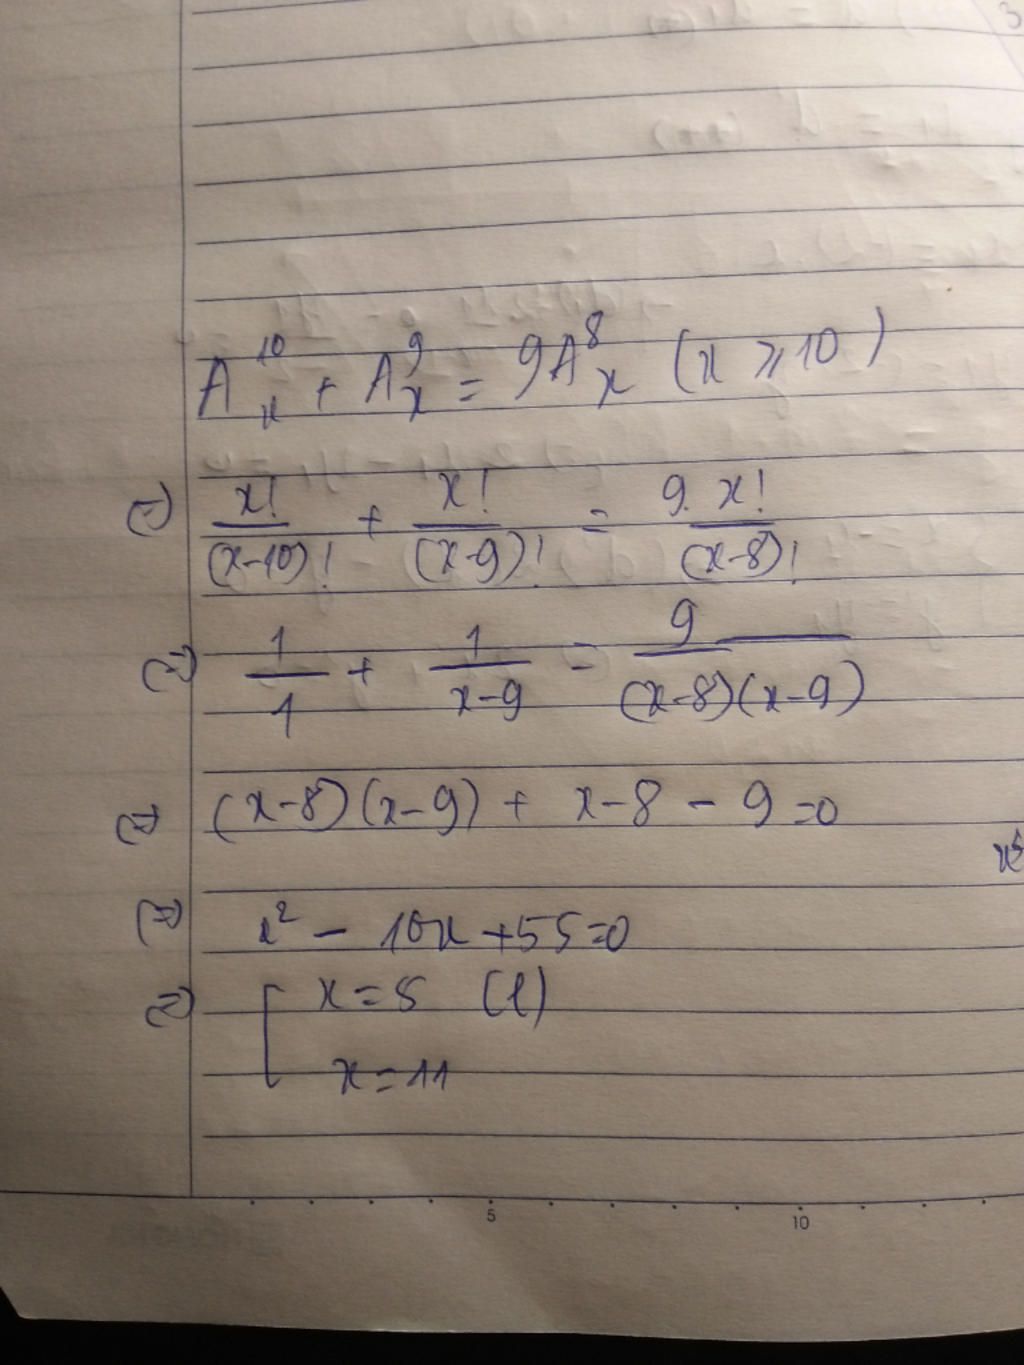 3
A_x^10 + A_x^9 = 9A_x^8 (x ⩾ 10)
(=) x!/(x-10)! + x!/(x-9)! = 9. x!/(x-8)!
(=) 1/1 + 1/(x-9) = 9/(x-8)(x-9)
(=) (x-8)(x-9) + x-8 - 9 =0
(=) x² - 16x +55=0
(=) [ x = 5 (l)
x = 11
5 10